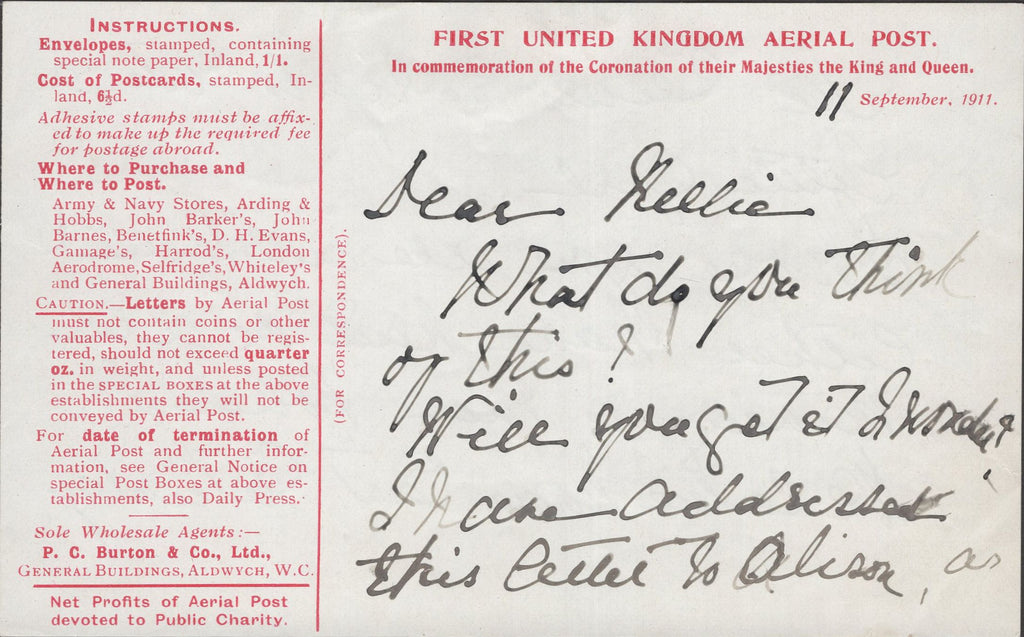 INSTRUCTIONS.
Envelopes, stamped, containing
special note paper, Inland, 1/1.
Cost of Postcards, stamped, In-
land, 6½d.
Adhesive stamps must be affix-
ed to make up the required fee
for postage abroad.
Where to Purchase and
Where to Post.
Army & Navy Stores, Arding &
Hobbs, John Barker's, John
Barnes, Benetfink's, D. H. Evans,
Gamage's, Harrod's, London
Aerodrome, Selfridge's, Whiteley's
and General Buildings, Aldwych.
CAUTION.—Letters by Aerial Post
must not contain coins or other
valuables, they cannot be regis-
tered, should not exceed quarter
oz. in weight, and unless posted
in the SPECIAL BOXES at the above
establishments they will not be
conveyed by Aerial Post.
For date of termination of
Aerial Post and further infor-
mation, see General Notice on
special Post Boxes at above es-
tablishments, also Daily Press.
Sole Wholesale Agents:—
P. C. Burton & Co., Ltd.,
GENERAL BUILDINGS, ALDWYCH, W.C.
Net Profits of Aerial Post
devoted to Public Charity.
(FOR CORRESPONDENCE).
FIRST UNITED KINGDOM AERIAL POST.
In commemoration of the Coronation of their Majesties the King and Queen.
11 September, 1911.
Dear Nellie
What do you think
of this?
Will you get it I
I have addressed
this letter to Alison, as